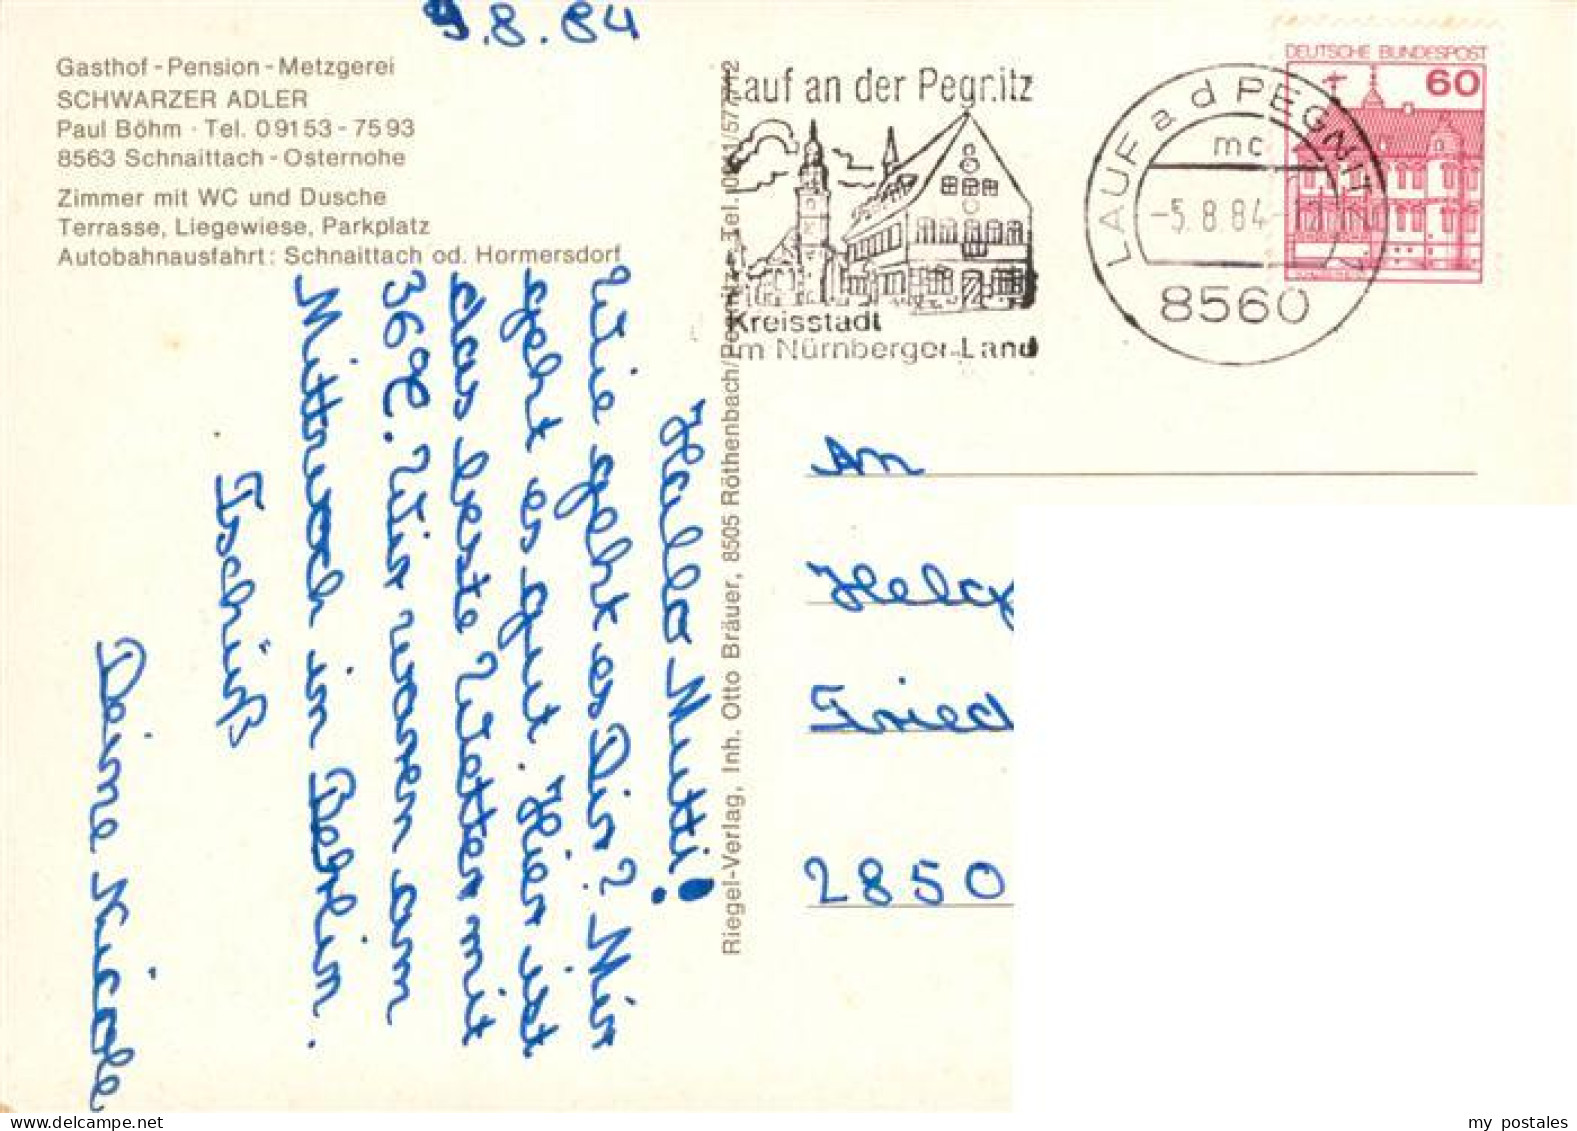 9.8.84
Gasthof - Pension - Metzgerei
SCHWARZER ADLER
Paul Böhm · Tel. 09153 - 7593
8563 Schnaittach - Osternohe
Zimmer mit WC und Dusche
Terrasse, Liegewiese, Parkplatz
Autobahnausfahrt: Schnaittach od. Hormersdorf
Hallo Mutti!
Wie geht es Dir? Mir
geht es gut. Hier ist
das beste Wetter mit
36°C. Wir waren am
Mittwoch in Berlin.
Tschüß
Deine Nicole
Riegel-Verlag, Inh. Otto Bräuer, 8505 Röthenbach/Pegnitz, Tel.
Lauf an der Pegnitz
Kreisstadt
im Nürnberger Land
LAUF a d PEGNITZ
mc
-5.8.84
8560
DEUTSCHE BUNDESPOST
60
An
Helg
Fried
2850
www.delcampe.net
my_postales